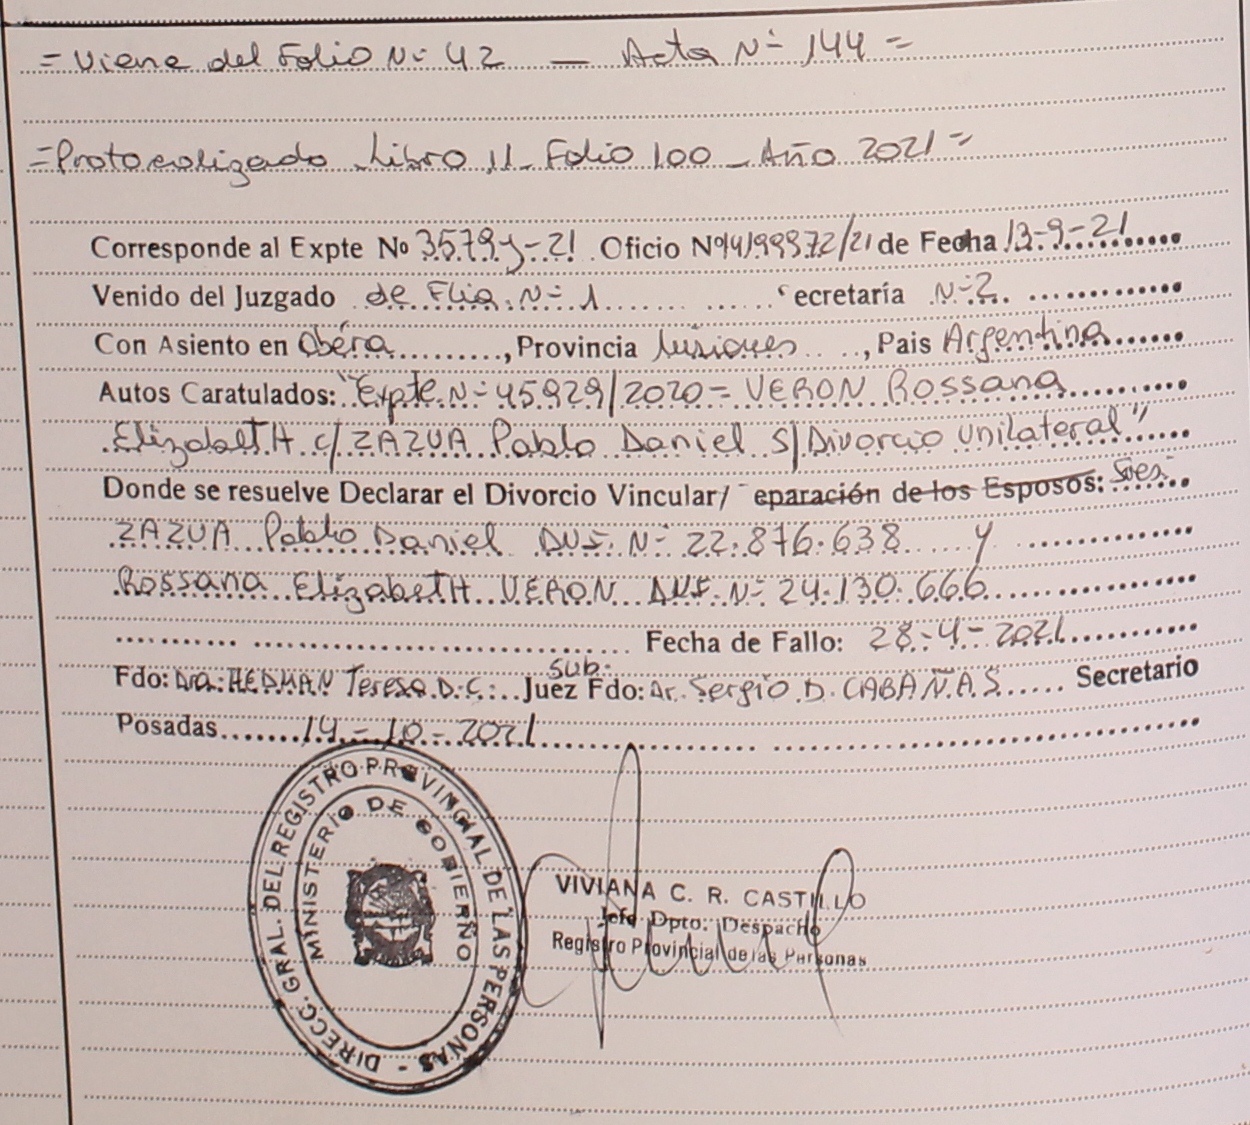 = Viene del Folio N= 42 — Acta N= 144 =
= Protocolizado Libro 11 - Folio 100 - Año 2021 =
Corresponde al Expte No 3579 y-21 Oficio Nº 14199972/21 de Fecha 13-9-21
Venido del Juzgado de Flia. N= 1 ecretaría N=2.
Con Asiento en Oberá, Provincia Misiones, Pais Argentina
Autos Caratulados: "Expte. N= 45929/2020 = VERON Rossana
ElizabetH c/ ZAZUA Pablo Daniel S/Divorcio Unilateral"
Donde se resuelve Declarar el Divorcio Vincular/ eparación de los Esposos: Sres.
ZAZUA Pablo Daniel DNI. N= 22.876.638 y
Rossana ElizabetH VERON DNI. N= 24.130.666
Fecha de Fallo: 28-4-2021
Sub.
Fdo: Dra. HEDMAN Teresa D.C. Juez Fdo: Dr. Sergio D. CABAÑAS Secretario
Posadas 14-10-2021
DIRECC. GRAL. DEL REGISTRO PROVINCIAL DE LAS PERSONAS -
MINISTERIO DE GOBIERNO
VIVIANA C. R. CASTILLO
Jefe Dpto. Despacho
Registro Provincial de las Personas